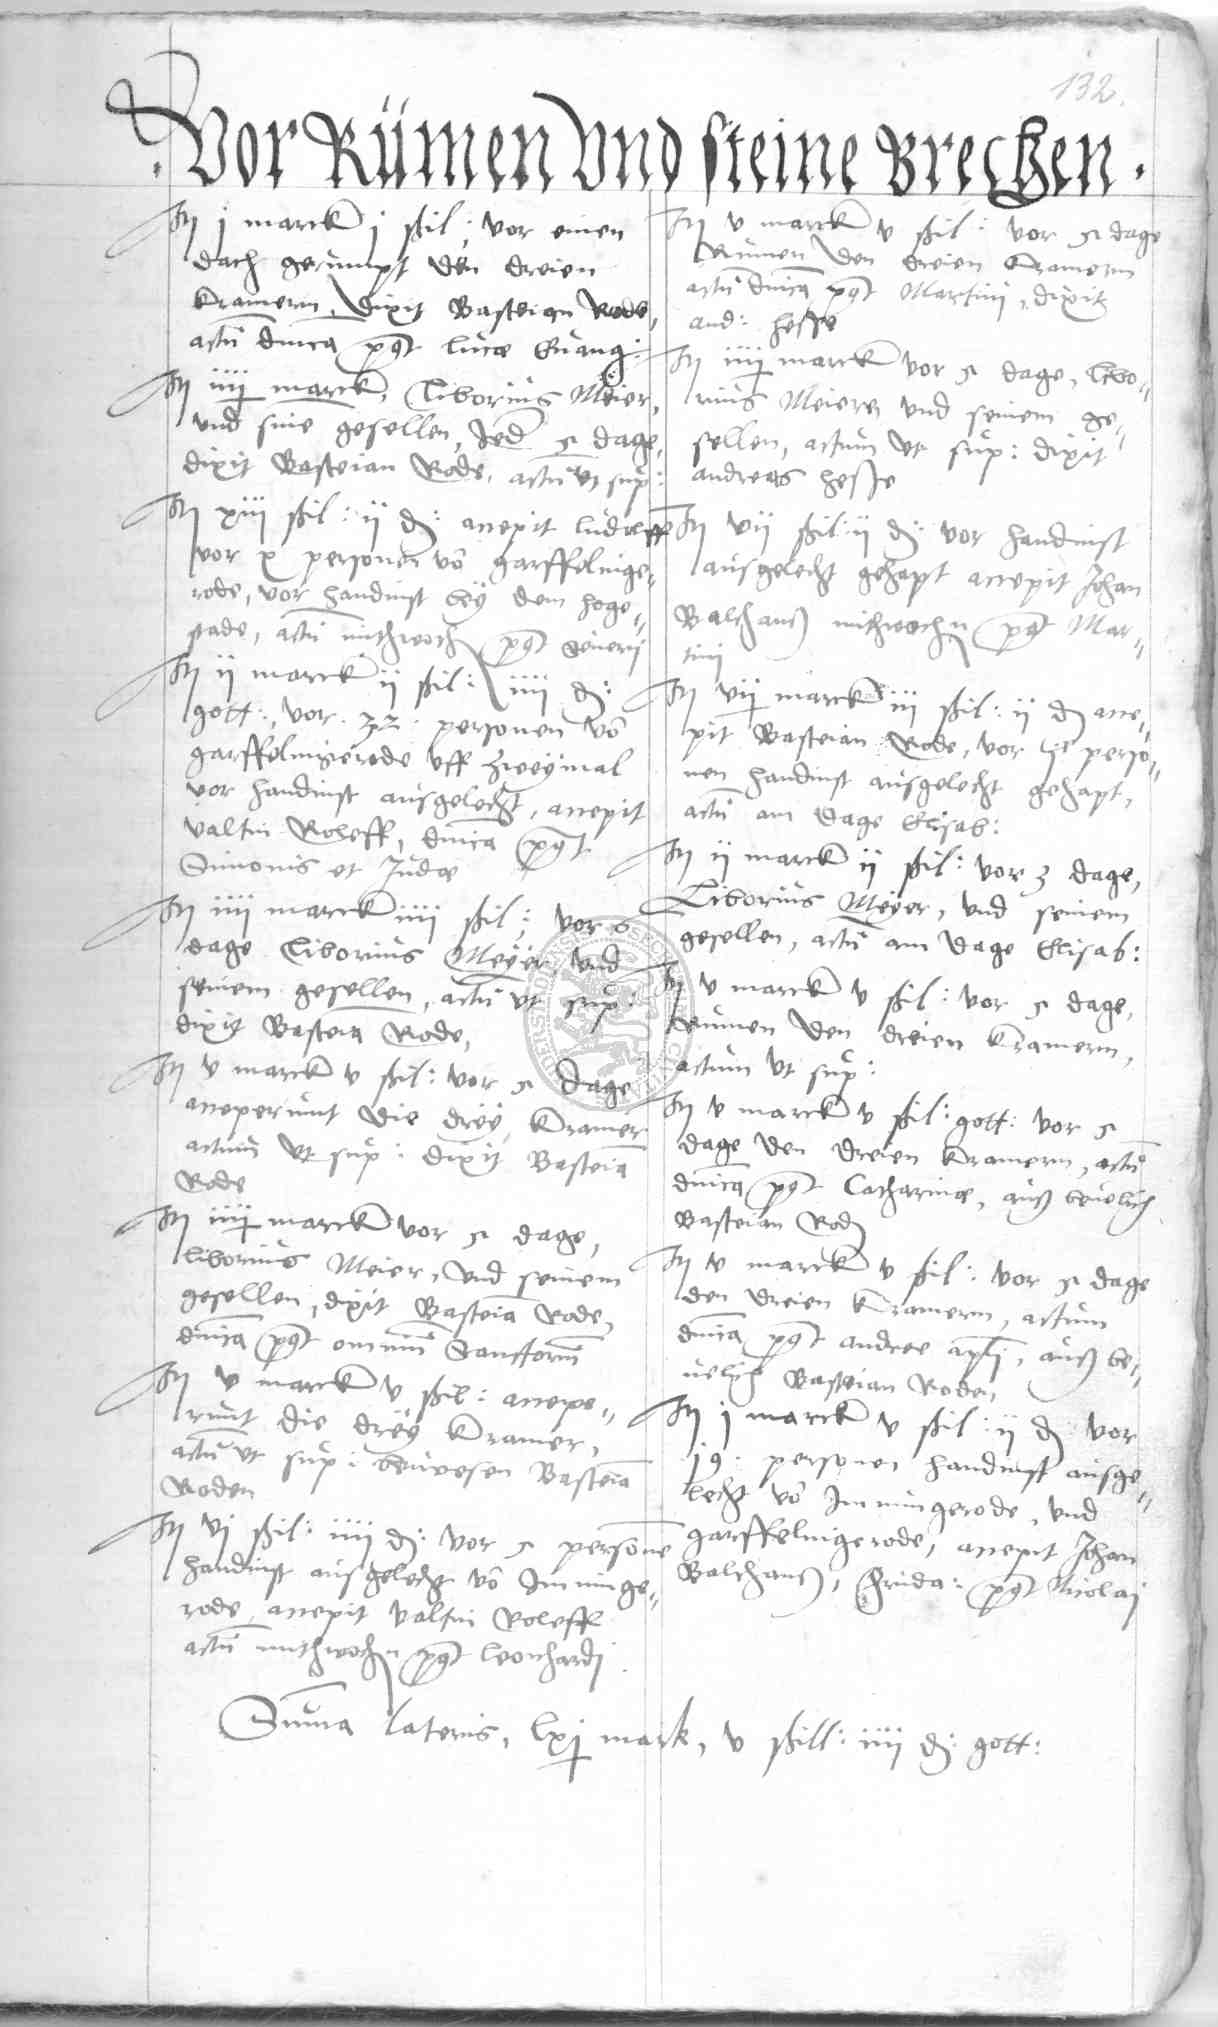 132.
Vor Rümen Vnd steine Brechen.
Itm j marck j ßil: vor einen
dach gerümpt den dreien
kramern, dixit Basteian Rode,
actū dnica post luce Euang:
Itm iiij marck, Liborius Meier,
vnd sine gesellen, 5 dage,
dixit Basteian Rode, actū ut sup:
Itm xiij ßil: ij d: accepit ludleff
vor x personen vō garffelnge-
rode, vor handinst bey dem hoge-
rade, actū mithwoch post Seuerij
Itm ij marck ij ßil: iiij d:
gott:, vor 22 personen vō
garffelnigerode vff zweymal
vor handinst ausgelecht, accepit
valtin Roleff, dnica post
Simonis et Jude
Itm iiij marck iiij ßil: vor 6
dage Liborius Meyer vnd
seinem gesellen, actū ut sup:
dixit Basteiā Rode,
Itm v marck v ßil: vor 5 dage
acceperunt die drey kramer
actum ut sup: dixit Basteiā
Rode
Itm iiij marck vor 5 dage,
liborius Meier, vnd seinem
gesellen, dixit Basteiā Rode,
dnica post omniū Sanctorū
Itm v marck v ßil: accepe-
runt die drey kramer,
actū ut sup: Basteiā
Roden
Itm vj ßil: iiij d: vor 5 personē
handinst ausgelecht vō Imminge-
rode, accepit valtin Roleff
actū mithwochn post leonhardj
Itm v marck v ßil: vor 5 dage
Rümen den dreien kramern
actū dnica post Martini, dixit
and: hesse
Itm iiij marck vor 5 dage, libo-
rius Meiere vnd seinem ge-
sellen, actum ut sup: dixit
andreas hesse
Itm vij ßil: ij d: vor handinst
ausgelecht gehapt accepit Johan
Balthaus mithwochn post Mar-
tini
Itm vij marck iij ßil: ij d acce-
pit Basteian Rode, vor perso-
nen handinst ausgelecht gehapt,
actū am dage Elisab:
Itm ij marck ij ßil: vor 3 dage,
Liborius Meyer, vnd seinem
gesellen, actū am dage Elisab:
Itm v marck v ßil: vor 5 dage,
Rümen den dreien kramern,
actum ut sup:
Itm v marck v ßil: gott: vor 5
dage den dreien kramern, actū
dnica post Catharine, auß beuelich
Basteian Rod
Itm v marck v ßil: vor 5 dage
den dreien kramern, actum
dnica post andree apli, auß be-
uelich Basteian Roden,
Itm j marck v ßil: ij d vor
19. personen handinst ausge-
lecht vō Immingerode, vnd
garffelnigerode, accepit Johan
Balthaus, frida: post Nicolaj
Suma lateris, lxj mark, v ßill: iiij d: gott: